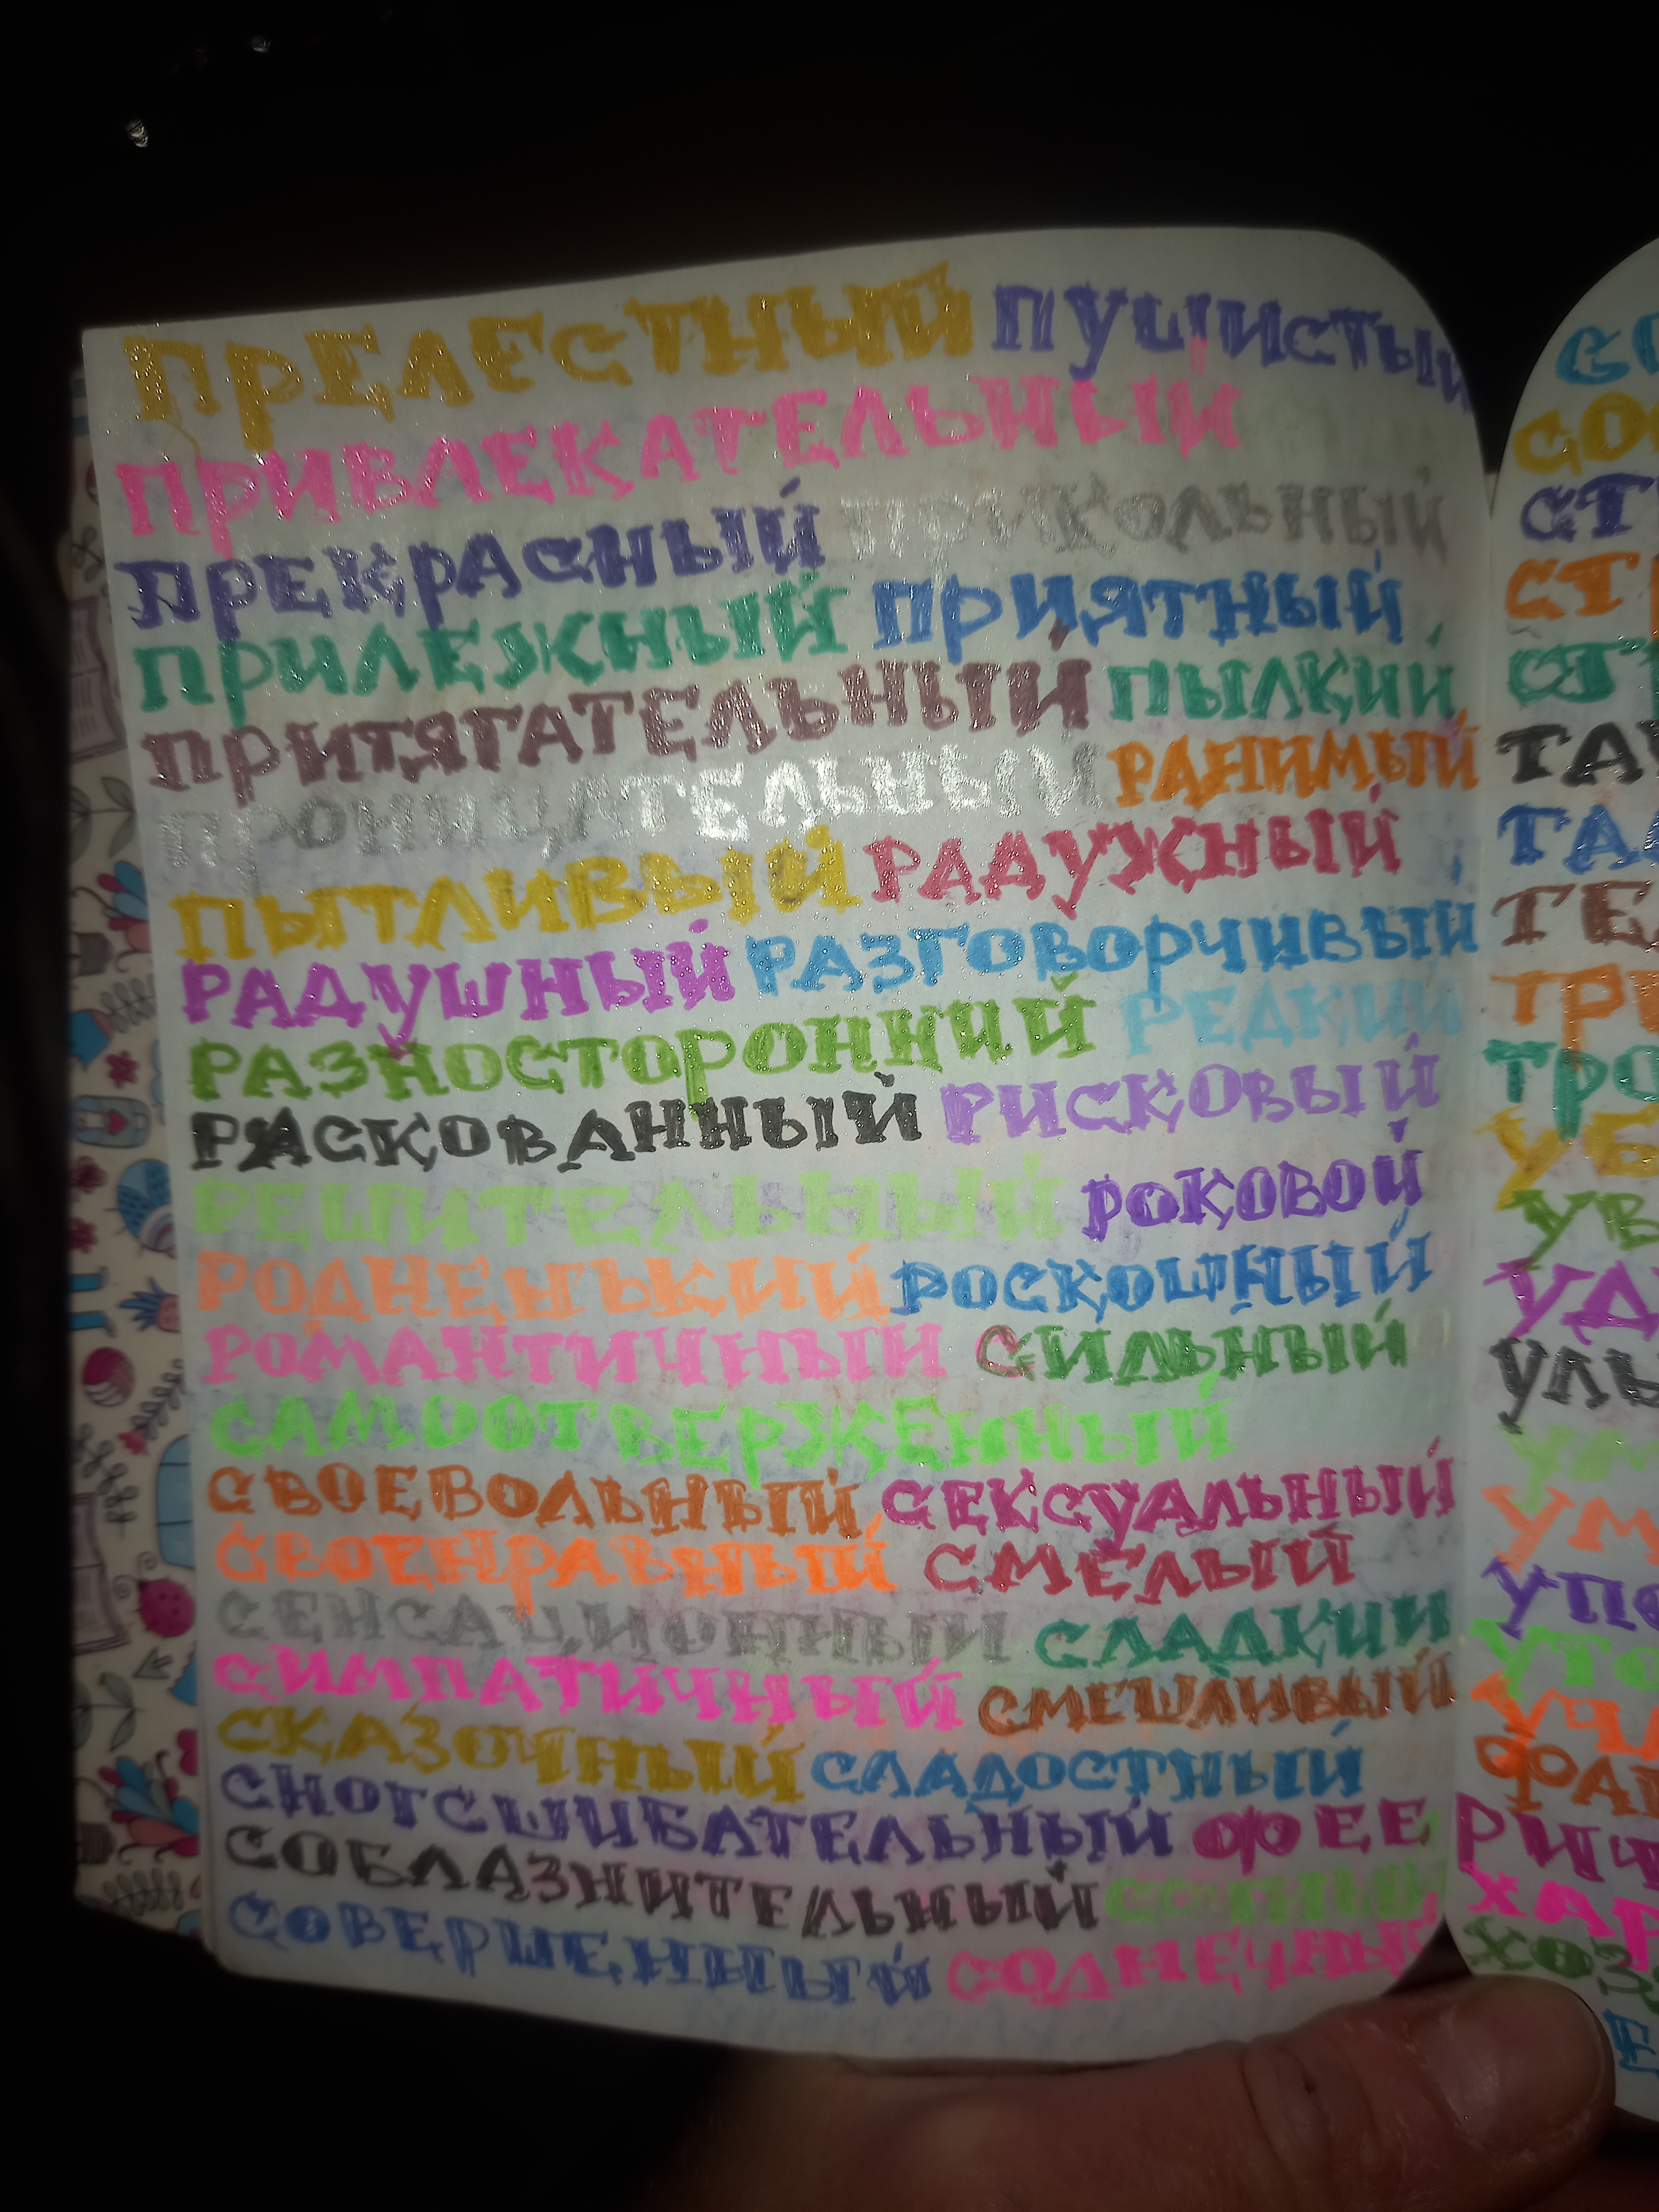 ПРЕЛЕСТНЫЙ ПУШИСТЫЙ
ПРИВЛЕКАТЕЛЬНЫЙ
ПРЕКРАСНЫЙ ПРИКОЛЬНЫЙ
ПРИЛЕЖНЫЙ ПРИЯТНЫЙ
ПРИТЯГАТЕЛЬНЫЙ ПЫЛКИЙ
ПРОНИЦАТЕЛЬНЫЙ РАНИМЫЙ
ПЫТЛИВЫЙ РАДУЖНЫЙ
РАДУШНЫЙ РАЗГОВОРЧИВЫЙ
РАЗНОСТОРОННИЙ РЕДКИЙ
РАСКОВАННЫЙ РИСКОВЫЙ
РЕШИТЕЛЬНЫЙ РОКОВОЙ
РОДНЕНЬКИЙ РОСКОШНЫЙ
РОМАНТИЧНЫЙ СИЛЬНЫЙ
САМООТВЕРЖЕННЫЙ
СВОЕВОЛЬНЫЙ СЕКСУАЛЬНЫЙ
СВОЕНРАВНЫЙ СМЕЛЫЙ
СЕНСАЦИОННЫЙ СЛАДКИЙ
СИМПАТИЧНЫЙ СМЕШЛИВЫЙ
СКАЗОЧНЫЙ СЛАДОСТНЫЙ
СНОГСШИБАТЕЛЬНЫЙ ФЕЕРИЧ
СОБЛАЗНИТЕЛЬНЫЙ
СОВЕРШЕННЫЙ СОЛНЕЧНЫЙ
СТ
СТР
ТА
ТЕ
ТРО
УБ
УВ
УД
УЛЬ
УМ
УПО
УТО
ХАР
ХОЗ